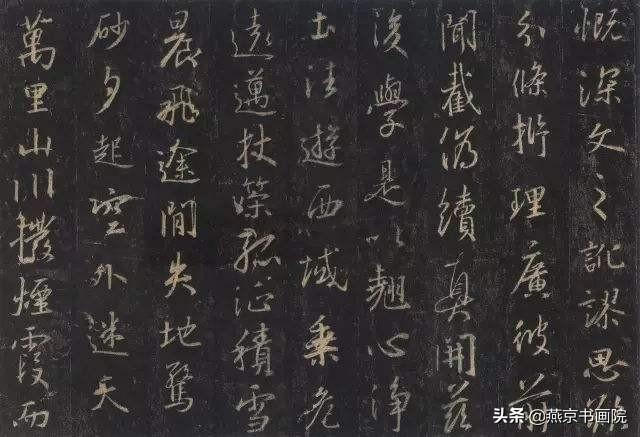 慨深文之訛謬思欲
分條析理廣彼前
聞截偽續真開茲
後學是以翹心淨
土往遊西域乘危
遠邁杖策孤征積雪
晨飛途閒失地驚
砂夕起空外迷天
萬里山川撥煙霞而
头条 @燕京书画院